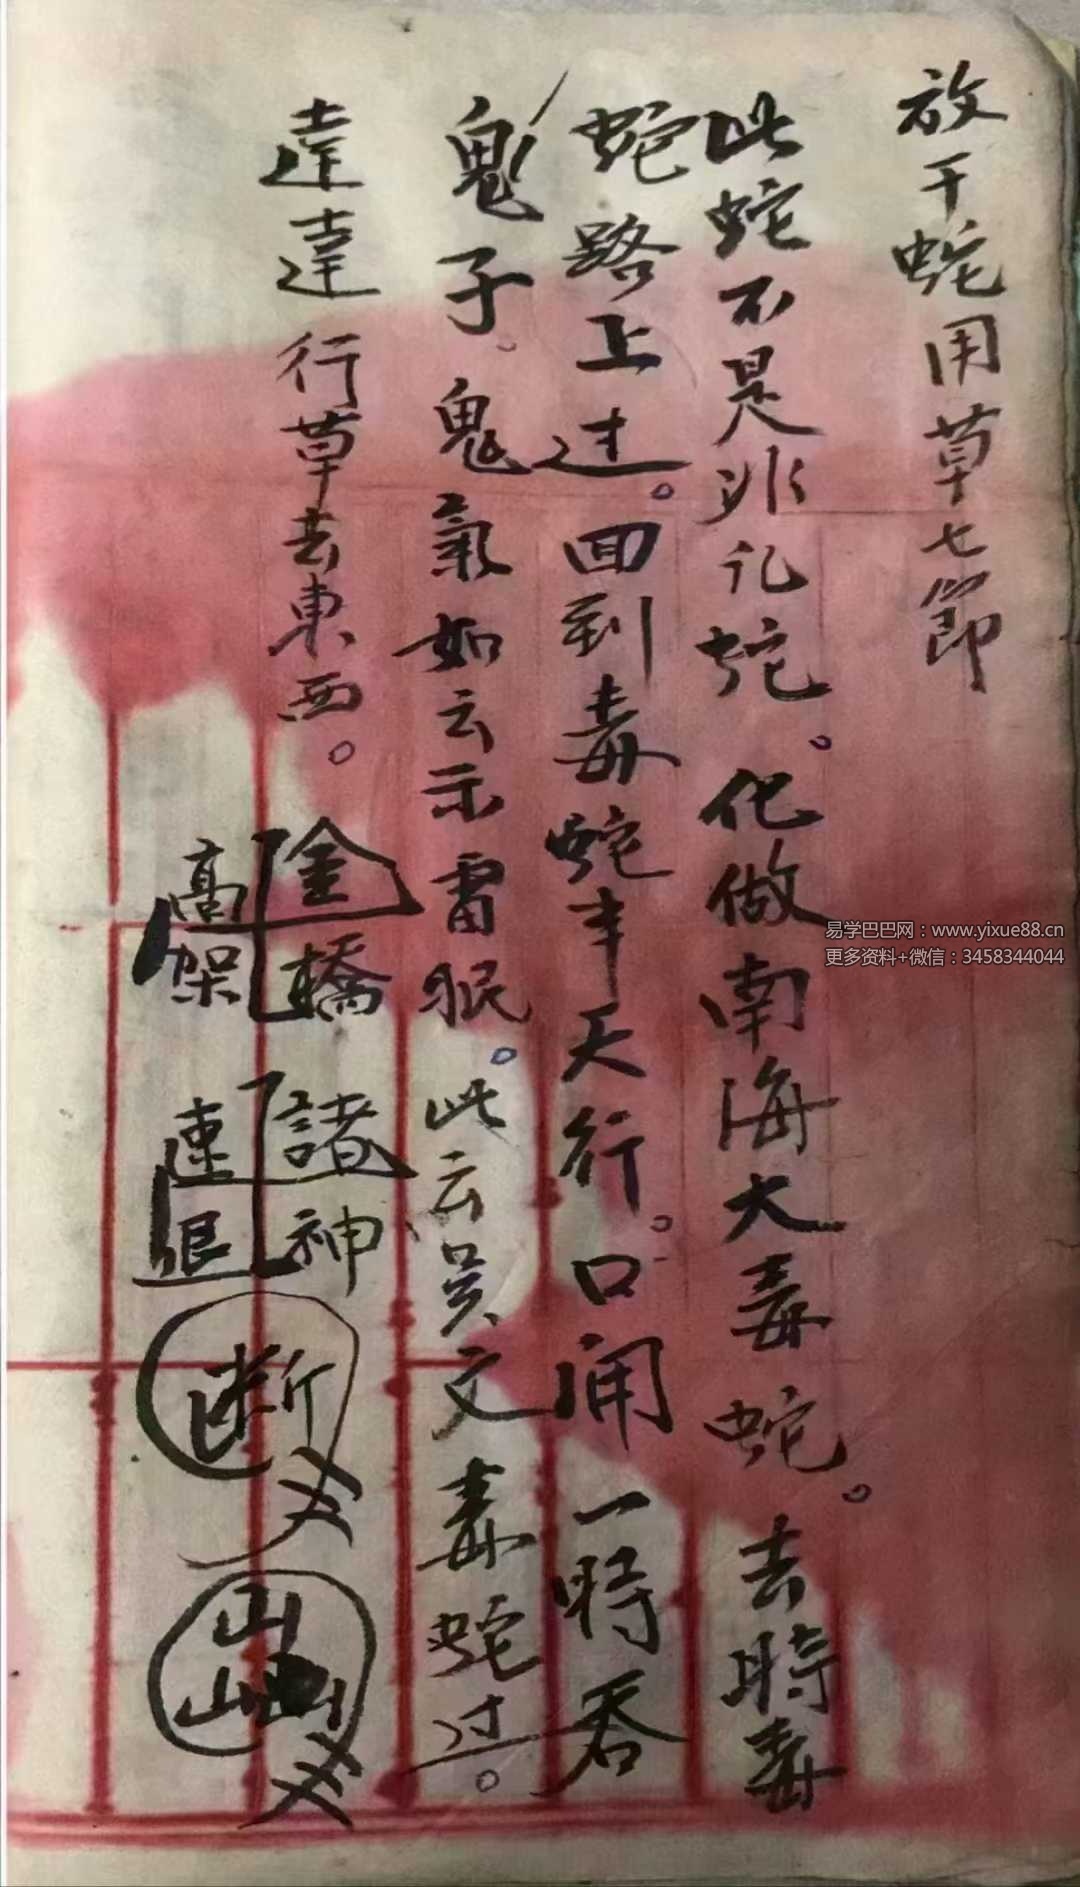 放干蛇用草七節
此蛇不是非礼蛇。化做南海大毒蛇。去時毒
蛇路上过。回到毒蛇丰天行。口闹一時吞
鬼子。鬼氣如云示雷眠。此云吴文毒蛇过。
達達行草去東西。
金橋 諸神
高架 速退
断
山山山
易学巴巴网：www.yixue88.cn
更多资料+微信：3458344044